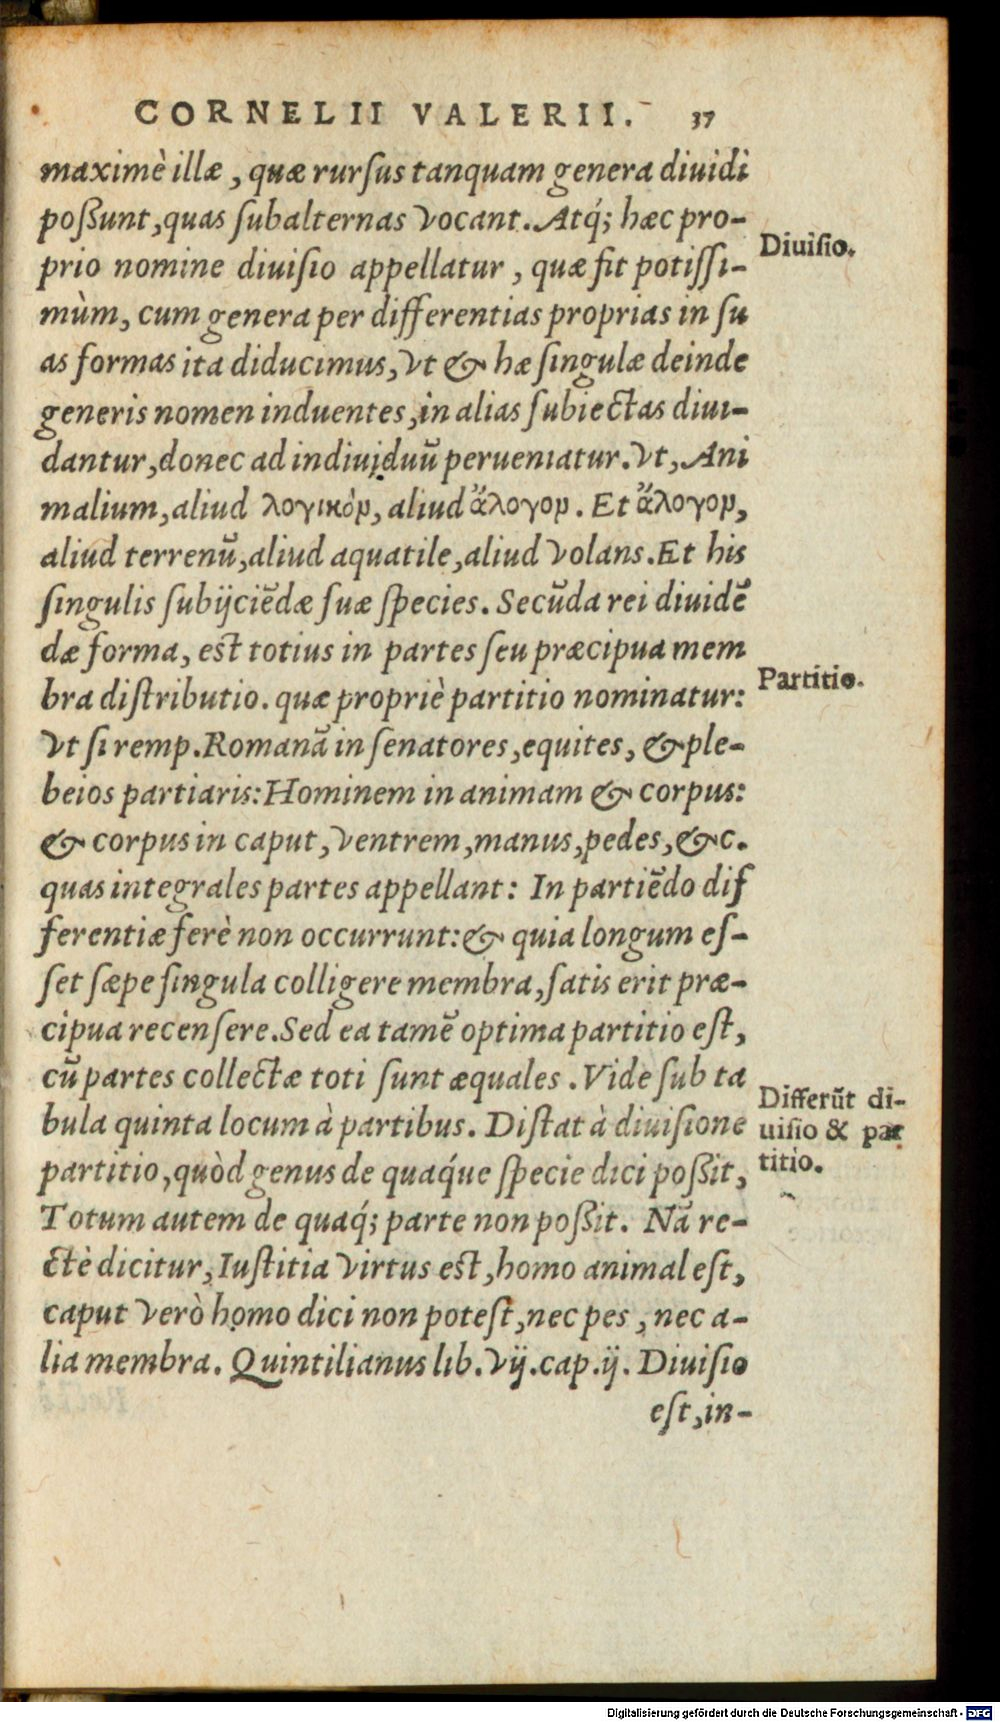 CORNELII VALERII. 37
maximè illæ, quæ rurſus tanquam genera diuidi
poßunt, quas ſubalternas vocant. Atq́; hæc pro-
prio nomine diuiſio appellatur, quæ fit potiſſi-
Diuiſio.
mùm, cum genera per differentias proprias in ſu
as formas ita diducimus, vt & hæ ſingulæ deinde
generis nomen induentes, in alias ſubiectas diui-
dantur, donec ad indiuiduū perueniatur. Vt, Ani
malium, aliud λογικὸν, aliud ἄλογον. Et ἄλογον,
aliud terrenū, aliud aquatile, aliud volans. Et his
ſingulis ſubijciēdæ ſuæ ſpecies. Secūda rei diuidē
dæ forma, eſt totius in partes ſeu præcipua mem
bra diſtributio. quæ propriè partitio nominatur:
Partitio.
vt ſi remp. Romanā in ſenatores, equites, & ple-
beios partiaris: Hominem in animam & corpus:
& corpus in caput, ventrem, manus, pedes, &c.
quas integrales partes appellant: In partiēdo dif
ferentiæ ferè non occurrunt: & quia longum eſ-
ſet ſæpe ſingula colligere membra, ſatis erit præ-
cipua recenſere. Sed ea tamē optima partitio eſt,
cū partes collectæ toti ſunt æquales. Vide ſub ta
bula quinta locum à partibus. Diſtat à diuiſione
partitio, quòd genus de quaq́ue ſpecie dici poßit,
Differūt di-
uiſio & par
titio.
Totum autem de quaq́; parte non poßit. Nā re-
ctè dicitur, Iuſtitia virtus eſt, homo animal eſt,
caput verò homo dici non poteſt, nec pes, nec a-
lia membra. Quintilianus lib. vij. cap. ij. Diuiſio
eſt, in-
Digitalisierung gefördert durch die Deutsche Forschungsgemeinschaft - DFG